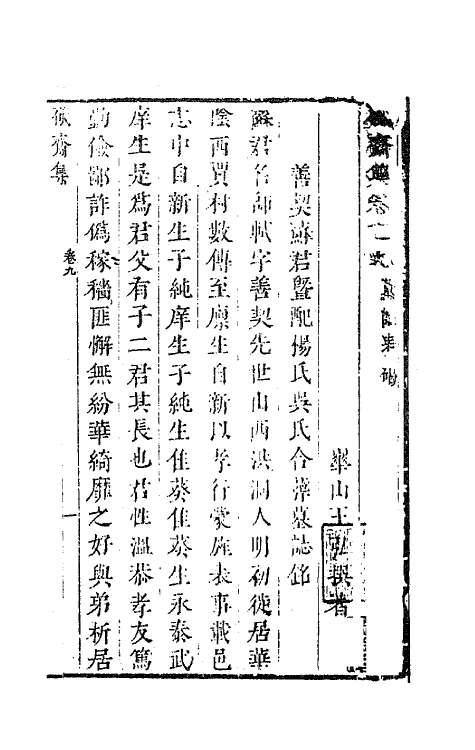 華山王弘撰著
善契蘇君曁配楊氏吳氏合葬墓誌銘
蘇君名師軾字善契先世山西洪洞人明初徙居華
陰西賈村數傳至廩生自新以孝行蒙旌表事載邑
志中自新生子純庠生子純生佳葵佳葵生永泰武
庠生是爲君父有子二君其長也君性溫恭孝友篤
勤儉鄙詐僞稼穡匪懈無紛華綺靡之好與弟析居
砥齋集
卷九
一